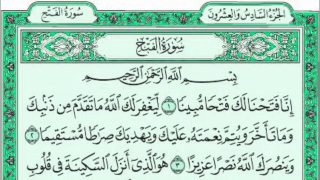 الجزء السادس والعشرون
سورة الفتح
سُورَةُ الفَتْحِ
بِسْمِ اللَّهِ الرَّحْمَٰنِ الرَّحِيمِ
إِنَّا فَتَحْنَا لَكَ فَتْحًا مُّبِينًا ١ لِّيَغْفِرَ لَكَ اللَّهُ مَا تَقَدَّمَ مِن ذَنۢبِكَ
وَمَا تَأَخَّرَ وَيُتِمَّ نِعْمَتَهُ عَلَيْكَ وَيَهْدِيَكَ صِرَاطًا مُّسْتَقِيمًا ٢
وَيَنصُرَكَ اللَّهُ نَصْرًا عَزِيزًا ٣ هُوَ الَّذِي أَنزَلَ السَّكِينَةَ فِي قُلُوبِ